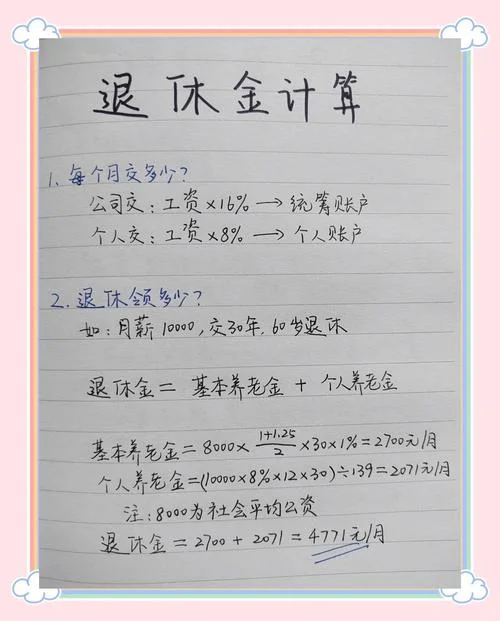 退休金计算
1. 每个月交多少?
公司交: 工资×16% → 统筹账户
个人交: 工资×8% → 个人账户
2. 退休领多少?
如: 月薪10000, 交30年, 60岁退休
退休金 = 基本养老金 + 个人养老金
基本养老金 = 8000 × (1+1.25)/2 × 30 × 1% = 2700元/月
个人养老金 = (10000×8%×12×30)÷139 = 2071元/月
注: 8000为社会平均工资
退休金 = 2700 + 2071 = 4771元/月